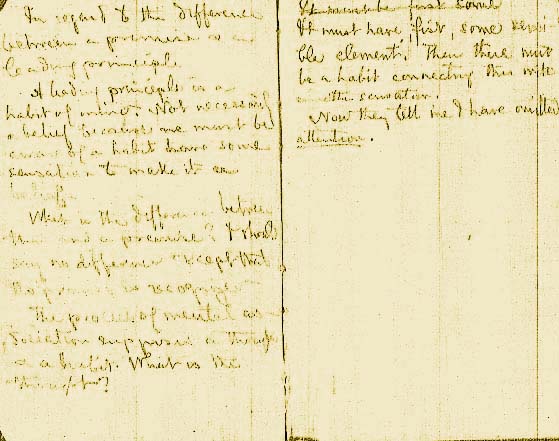 In regard to the difference
between a premise & a
leading principle.
A leading principle is a
habit of mind. Not necessarily
a belief because one must be
aware of a habit have some
sensation to make it a
belief.
What is the difference between
this and a premise? I should
say no difference except that
the premise is recognized
The process of mental as-
sociation supposes a thought
& a habit. What is the
"thought"?
It must be first some
It must have first, some sensi-
ble element. Then there must
be a habit connecting this with
another sensation.
Now they tell me I have omitted
attention.